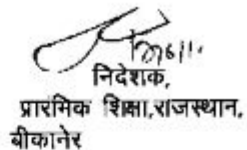 निदेशक,
प्रारंभिक शिक्षा,राजस्थान,
बीकानेर